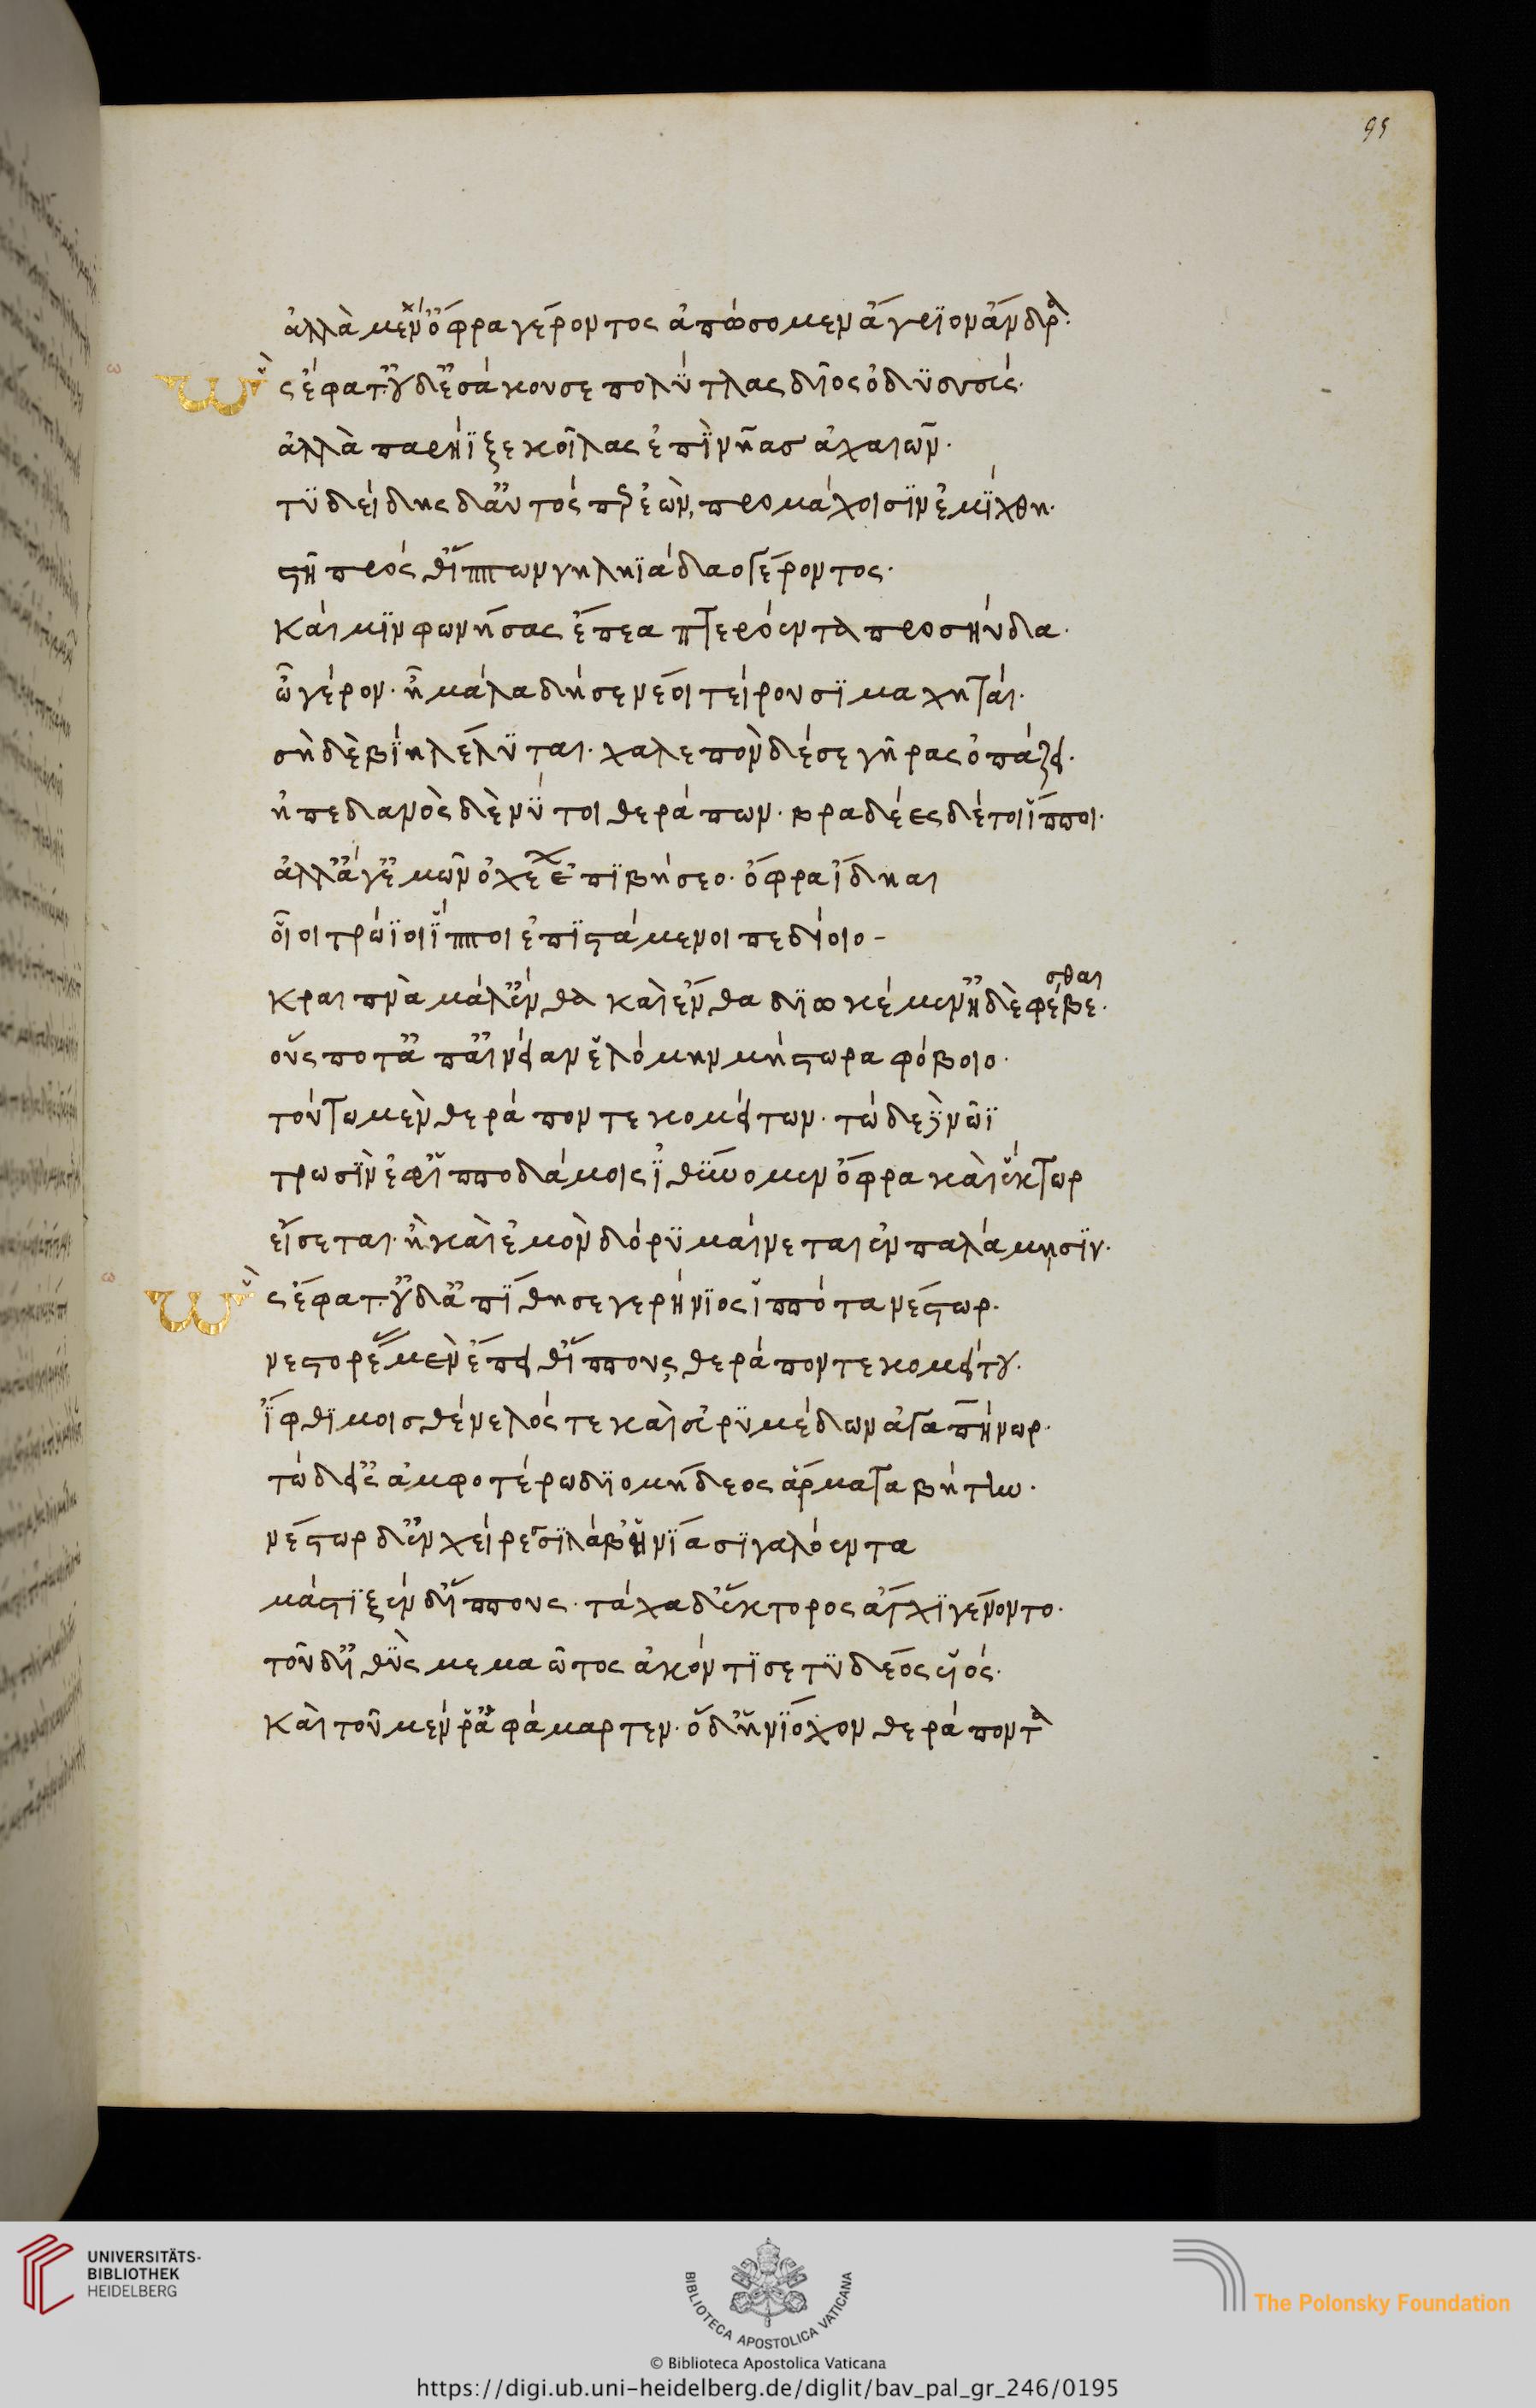 95
ἀλλὰ μέν' ὄφρα γέροντος ἀπώσομεν ἄγριον ἄνδρα.
ὣς ἔφατ' οὐδ' ἐσάκουσε πολύτλας δῖος ὀδυσσεύς.
ἀλλὰ παρήϊξε κοίλας ἐπὶ νῆας ἀχαιῶν.
τυδείδης δ' αὐτός περ ἐὼν, προμάχοισιν ἐμίχθη.
στῆ πρόσθ' ἵππων νηληϊάδαο γέροντος.
καί μιν φωνήσας ἔπεα πτερόεντα προσηύδα.
ὦ γέρον. ἦ μάλα δή σε νέοι τείρουσι μαχηταί.
σὴ δὲ βίη λέλυται. χαλεπὸν δέ σε γῆρας ὀπάζει.
ἠπεδανὸς δὲ νύ τοι θεράπων. βραδέες δέ τοι ἵπποι.
ἀλλ' ἄγ' ἐμῶν ὀχέων ἐπιβήσεο. ὄφρα ἴδηαι
οἷοι τρώϊοι ἵπποι ἐπιστάμενοι πεδίοιο
κραιπνὰ μάλ' ἔνθα καὶ ἔνθα διωκέμεν ἠδὲ φέβε.
σθαι
οὕς ποτ' ἀπ' αἰνείαν ἑλόμην μήστωρα φόβοιο.
τούτω μὲν θεράποντε κομείτων. τώδε δὲ νῶϊ
τρωσὶν ἐφ' ἱπποδάμοις ἰθύνομεν ὄφρα καὶ ἕκτωρ
εἴσεται. ἢ καὶ ἐμὸν δόρυ μαίνεται ἐν παλάμησιν.
ὣς ἔφατ' οὐδ' ἀπίθησε γερήνιος ἱππότα νέστωρ.
νεστορέας μὲν ἔπειθ' ἵππους, θεράποντε κομείτην.
ἴφθιμοι σθένελός τε καὶ εὐρυμέδων ἀγαπήνωρ.
τὼ δ' εἰς ἀμφοτέρω διομήδεος ἅρματα βήτην.
νέστωρ δ' ἐν χείρεσσι λάβ' ἡνία σιγαλόεντα
μάστιξεν δ' ἵππους. τάχα δ' ἕκτορος ἄγχι γένοντο.
τοῦ δ' ἰθὺς μεμαῶτος ἀκόντισε τυδέος υἱός.
καὶ τοῦ μέν ῥ' ἀφάμαρτεν. ὃ δ' ἡνίοχον θεράποντα
UNIVERSITÄTS-
BIBLIOTHEK
HEIDELBERG
BIBLIOTECA APOSTOLICA VATICANA
The Polonsky Foundation
© Biblioteca Apostolica Vaticana
https://digi.ub.uni-heidelberg.de/diglit/bav_pal_gr_246/0195